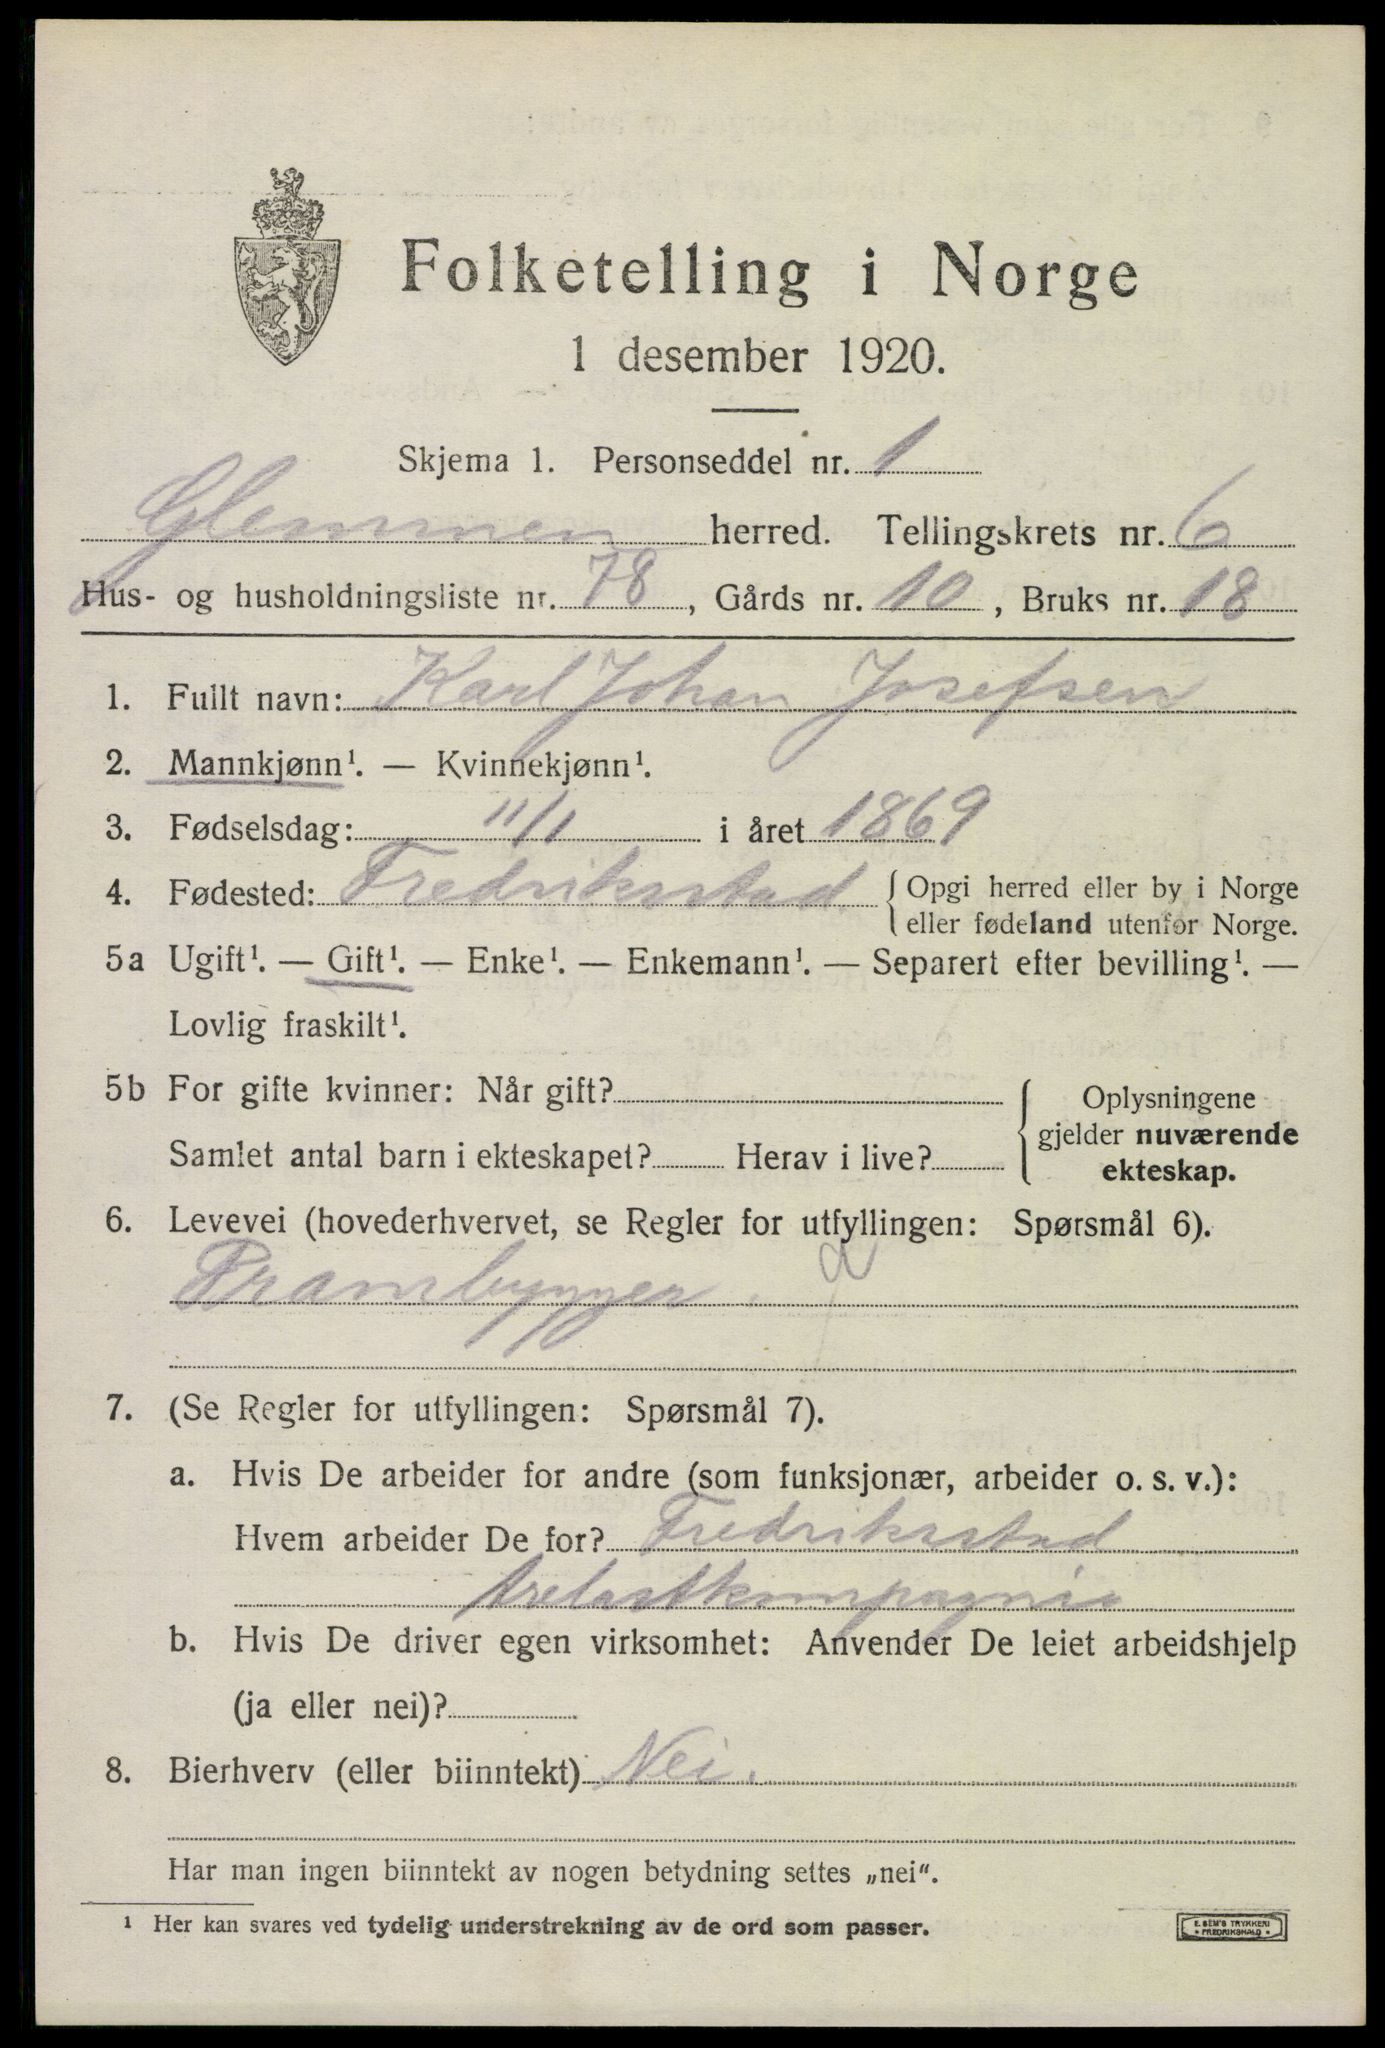 Folketelling i Norge
1 desember 1920.
Skjema 1. Personseddel nr. 1
Glemmen herred. Tellingskrets nr. 6
Hus- og husholdningsliste nr. 78, Gårds nr. 10, Bruks nr. 18
1. Fullt navn: Karl Johan Josefsen
2. Mannkjønn¹. — Kvinnekjønn¹.
3. Fødselsdag: 11/1 i året 1869
4. Fødested: Fredriksstad { Opgi herred eller by i Norge
eller fødeland utenfor Norge.
5a Ugift¹. — Gift¹. — Enke¹. — Enkemann¹. — Separert efter bevilling¹. —
Lovlig fraskilt¹.
5b For gifte kvinner: Når gift? { Oplysningene
gjelder nuværende
Samlet antal barn i ekteskapet? Herav i live? ekteskap.
6. Levevei (hovederhvervet, se Regler for utfyllingen: Spørsmål 6).
Prambygger.
7. (Se Regler for utfyllingen: Spørsmål 7).
a. Hvis De arbeider for andre (som funksjonær, arbeider o. s. v.):
Hvem arbeider De for? Fredriksstad
trelastkompagnie
b. Hvis De driver egen virksomhet: Anvender De leiet arbeidshjelp
(ja eller nei)?
8. Bierhverv (eller biinntekt) Nei.
Har man ingen biinntekt av nogen betydning settes „nei“.
¹ Her kan svares ved tydelig understrekning av de ord som passer.
E. SEM'S TRYKKERI
* FREDRIKSHALD *